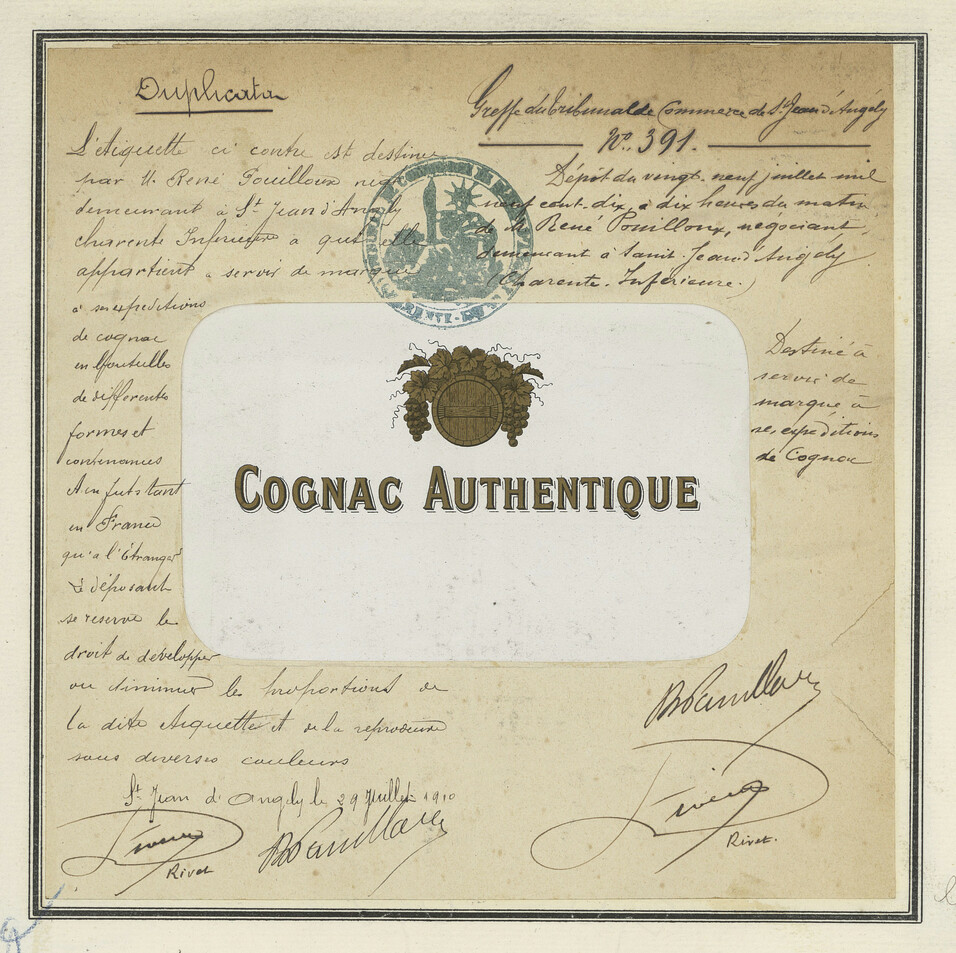 Duplicata
L'étiquette ci contre est destinée
par M. René Pouilloux négt
demeurant à St Jean d'Angély
Charente Inférieure à qui elle
appartient à servir de marque
à ses expéditions
de cognac
en bouteilles
de différentes
formes et
contenances
et en futs tant
en France
qu'à l'Étranger
Le déposant
se réserve le
droit de développer
ou diminuer les proportions de
la dite étiquette et de la reproduire
sous diverses couleurs
St Jean d'Angély le 29 Juillet 1910
Rivet
Greffe du tribunal de Commerce de St Jean d'Angély
No. 391.
Dépôt du vingt-neuf juillet mil
neuf cent-dix, à dix heures du matin
de M. René Pouilloux, négociant,
demeurant à Saint-Jean d'Angély
(Charente-Inférieure.)
Destiné à
servir de
marque à
ses expéditions
de Cognac
COGNAC AUTHENTIQUE
Rivet.